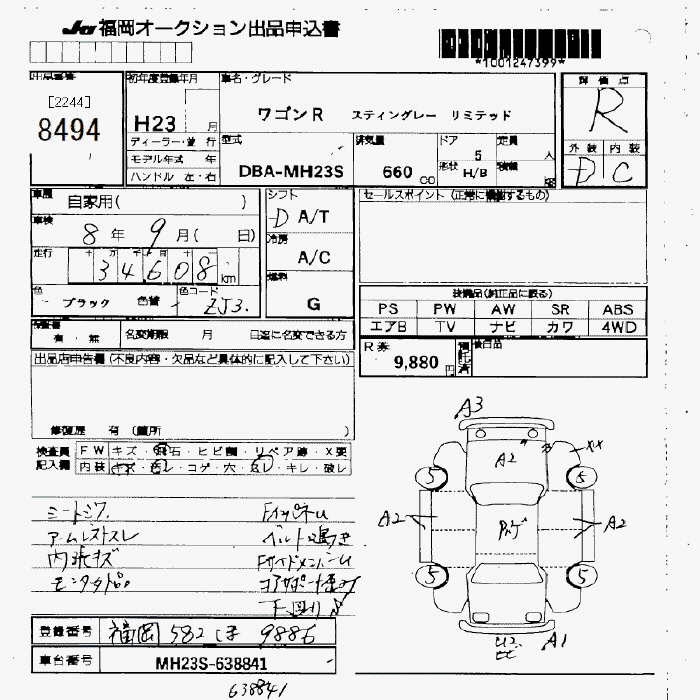 JU 福岡オークション出品申込書
*1001247399*
出品番号
[2244]
8494
初年度登録年月
H23 月
ディーラー・並行
モデル年式 年
ハンドル 左・右
車名・グレード
ワゴンR スティングレー リミテッド
型式
DBA-MH23S
排気量
660 CC
ドア
5
形状
H/B
定員
人
積載
評価点
R
外装 内装
D C
車歴
自家用( )
車検
8年 9月( 日)
走行
34608 km
色
ブラック 色替
色コード
ZJ3
シフト
D A/T
冷房
A/C
燃料
G
セールスポイント (正常に機能するもの)
装備品(純正品に限る)
PS PW AW SR ABS
エアB TV ナビ カワ 4WD
保証書
有・無
名変期限 月 日迄に名変できる方
R券
9,880 円
預託済
後日品
出品店申告欄 (不良内容・欠品など具体的に記入して下さい)
修復歴 有 (箇所 )
検査員記入欄
FW キズ・飛石・ヒビ割・リペア跡・X要
内装 キズ・汚レ・コゲ・穴・ヨレ・キレ・破レ
シートシワ
アームレストスレ
内張キズ
Fインパネル
ベルト鳴き
FサイドメンバーU
コアサポート
下回りS
A3
A2
XX
5 5
A2 A2
5 5
A1
登録番号 福岡 582 ほ 9886
車台番号 MH23S-638841
638841